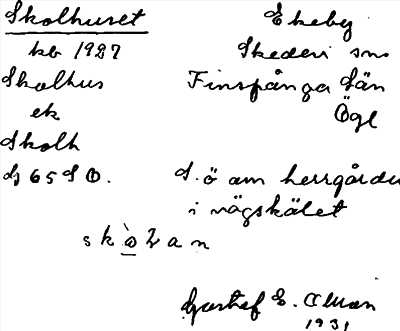 Skolhuset
kb 1927
Skolhus
ek
Skolh
G 65 S O.
Ekeby
Skedevi sn
Finspånga län
Ögl
S. ö om herrgården
i vägskälet
skolan
Gustaf E. Alman
1931